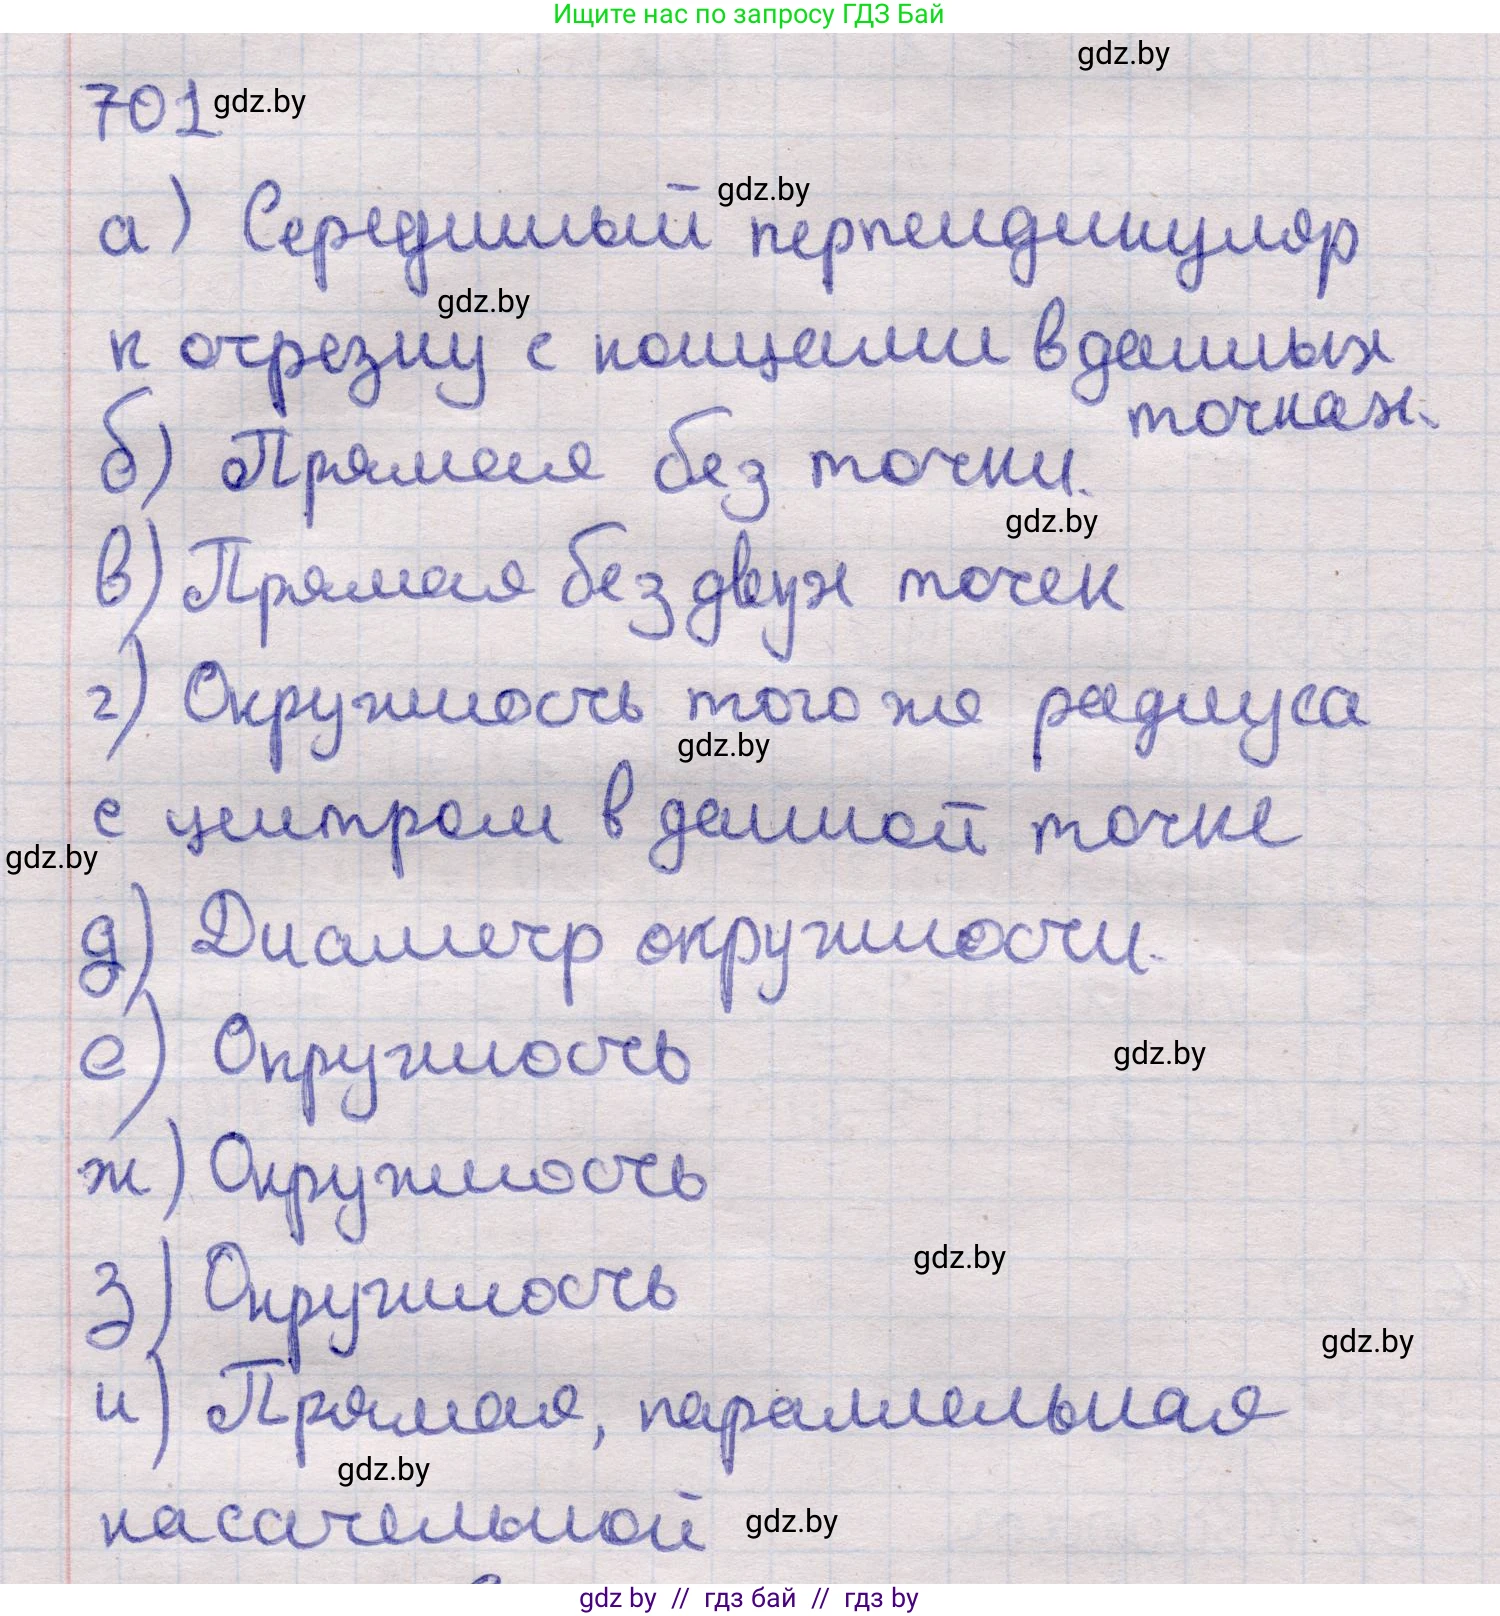 Ищите нас по запросу ГДЗ Бай
gdz.by
701 gdz.by
gdz.by
а) Серединный перпендикуляр
gdz.by
к отрезку с концами в данных
точках.
б) Прямая без точки.
gdz.by
в) Прямая без двух точек
г) Окружность того же радиуса
gdz.by
с центром в данной точке
gdz.by
д) Диаметр окружности.
е) Окружность
gdz.by
ж) Окружность
з) Окружность
gdz.by
gdz.by
и) Прямая, параллельная
gdz.by
касательной
gdz.by
gdz by // гдз бай // гдз by